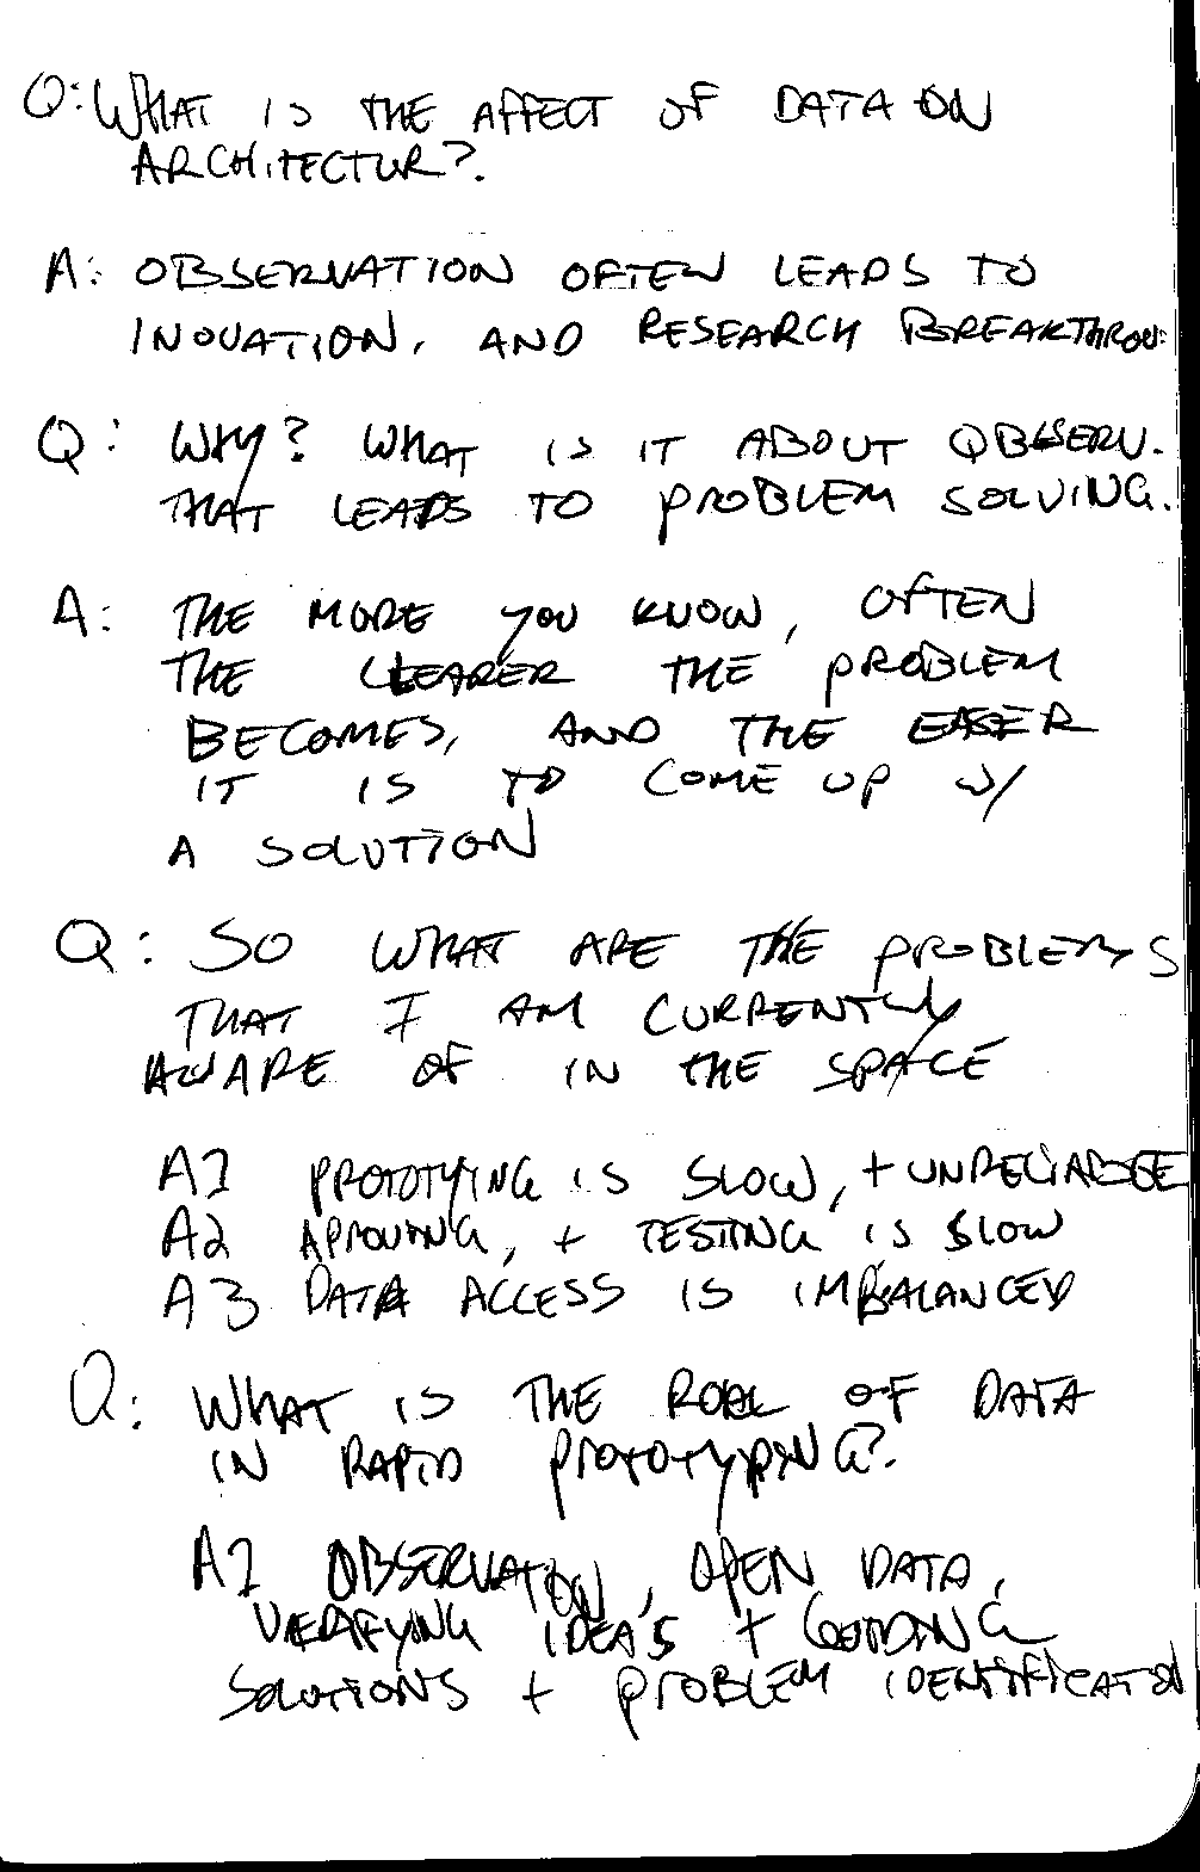 Q: WHAT IS THE AFFECT OF DATA ON
ARCHITECTUR?.
A: OBSERVATION OFTEN LEADS TO
INOVATION, AND RESEARCH BREAKTHROU
Q: WHY? WHAT IS IT ABOUT OBSERV.
THAT LEADS TO PROBLEM SOLVING.
A: THE MORE YOU KNOW, OFTEN
THE CLEARER THE PROBLEM
BECOMES, AND THE EASER
IT IS TO COME UP W/
A SOLUTION
Q: SO WHAT ARE THE PROBLEMS
THAT I AM CURRENTLY
AWARE OF IN THE SPACE
A1 PROTOTYING IS SLOW, + UNRELIABLE
A2 APROVING, + TESTING IS SLOW
A3 DATA ACCESS IS IMBALANCED
Q: WHAT IS THE ROLE OF DATA
IN RAPID PROTOTYPING?.
A1 OBSERVATION, OPEN DATA,
VERIFYING IDEA'S + GUIDING
SOLUTIONS + PROBLEM IDENTIFICATION